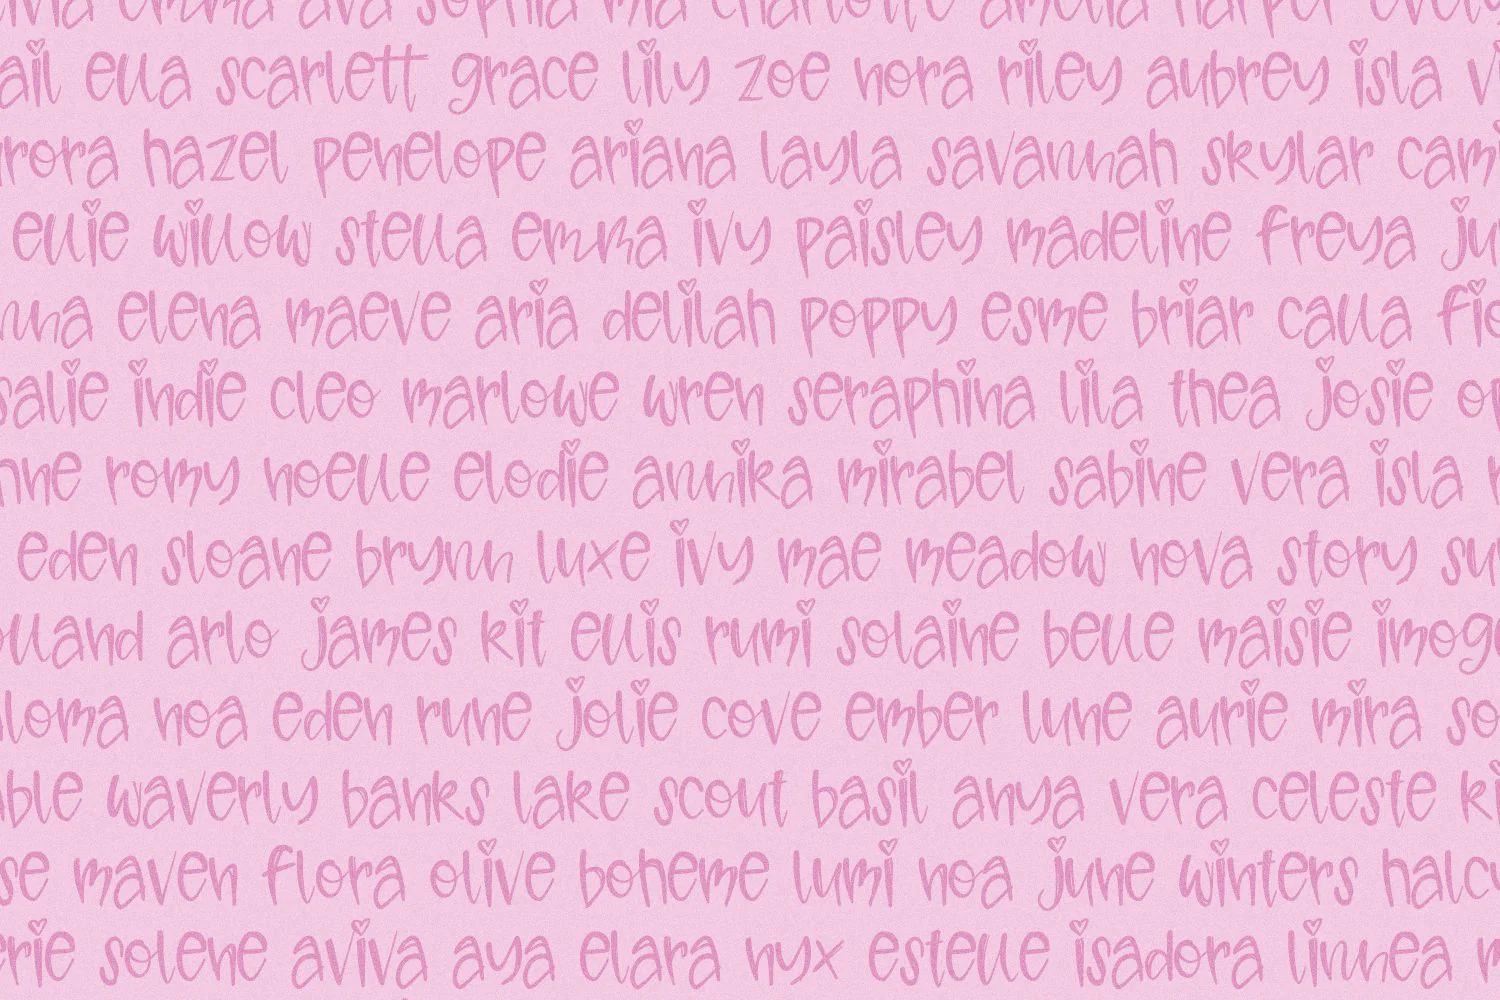 emma ava sophia mia charlotte amelia harper
ella scarlett grace lily zoe nora riley aubrey isla
hazel penelope ariana layla savannah skylar
ellie willow stella emma ivy paisley madeline freya
elena maeve aria delilah poppy esme briar calla
indie cleo marlowe wren seraphina lila thea josie
romy noelle elodie annika mirabel sabine vera isla
eden sloane brynn luxe ivy mae meadow nova story
arlo james kit ellis rumi solaine belle maisie
noa eden rune jolie cove ember lune aurie mira
waverly banks lake scout basil anya vera celeste
maven flora olive boheme lumi noa june winters
solene aviva aya elara nyx estelle isadora linnea